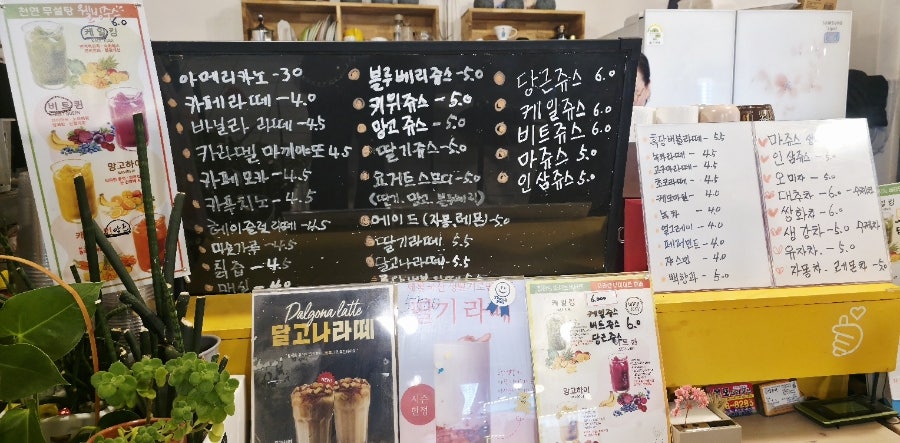 천연 무설탕 웰빙쥬스
케일킹
6.0
비트퀸
망고하이
아메리카노 - 3.0
카페라떼 - 4.0
바닐라 라떼 - 4.5
카라멜 마끼아또 4.5
카페모카 - 4.5
카푸치노 - 4.5
헤이즐럿라떼 - 4.5
미숫가루 - 4.5
칙즙 - 4.5
매실
블루베리쥬스 - 5.0
키위쥬스 - 5.0
망고쥬스 - 5.0
딸기쥬스 - 5.0
요거트스무디 - 5.0
(딸기, 망고, 블루베리)
에이드 (자몽, 레몬) - 5.0
딸기라떼 - 5.5
달고나라떼 - 5.5
당근쥬스 6.0
케일쥬스 6.0
비트쥬스 6.0
마쥬스 5.0
인삼쥬스 5.0
흑당버블라떼 - 5.5
녹차라떼 - 4.5
고구마라떼 - 4.5
초코라떼 - 4.5
케모마일 - 4.0
녹차 - 4.0
얼그레이 - 4.0
페퍼민트 - 4.0
쟈스민 - 4.0
백향과 - 5.0
마쥬스
인삼쥬스 - 5.0
오미자 - 5.0
대추차 - 6.0 - 수제
쌍화차 - 6.0
생강차 - 5.0 수제차
유자차 - 5.0
자몽차 - 레몬차 - 5.0
Dalgona latte
달고나라떼
NEW
딸기라떼
시즌
한정
케일킹
6.000
케일쥬스
비트쥬스 6.0
당근쥬스
망고하이